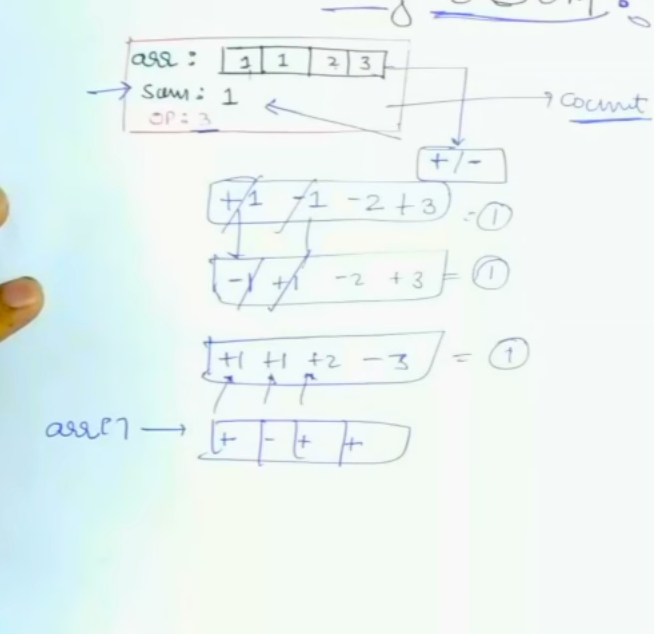 arr: 1 1 2 3
Sum: 1
count
OP: 3
+/-
+1 -1 -2 +3 = 1
-1 +1 -2 +3 = 1
+1 +1 +2 -3 = 1
arr[] → + - + +